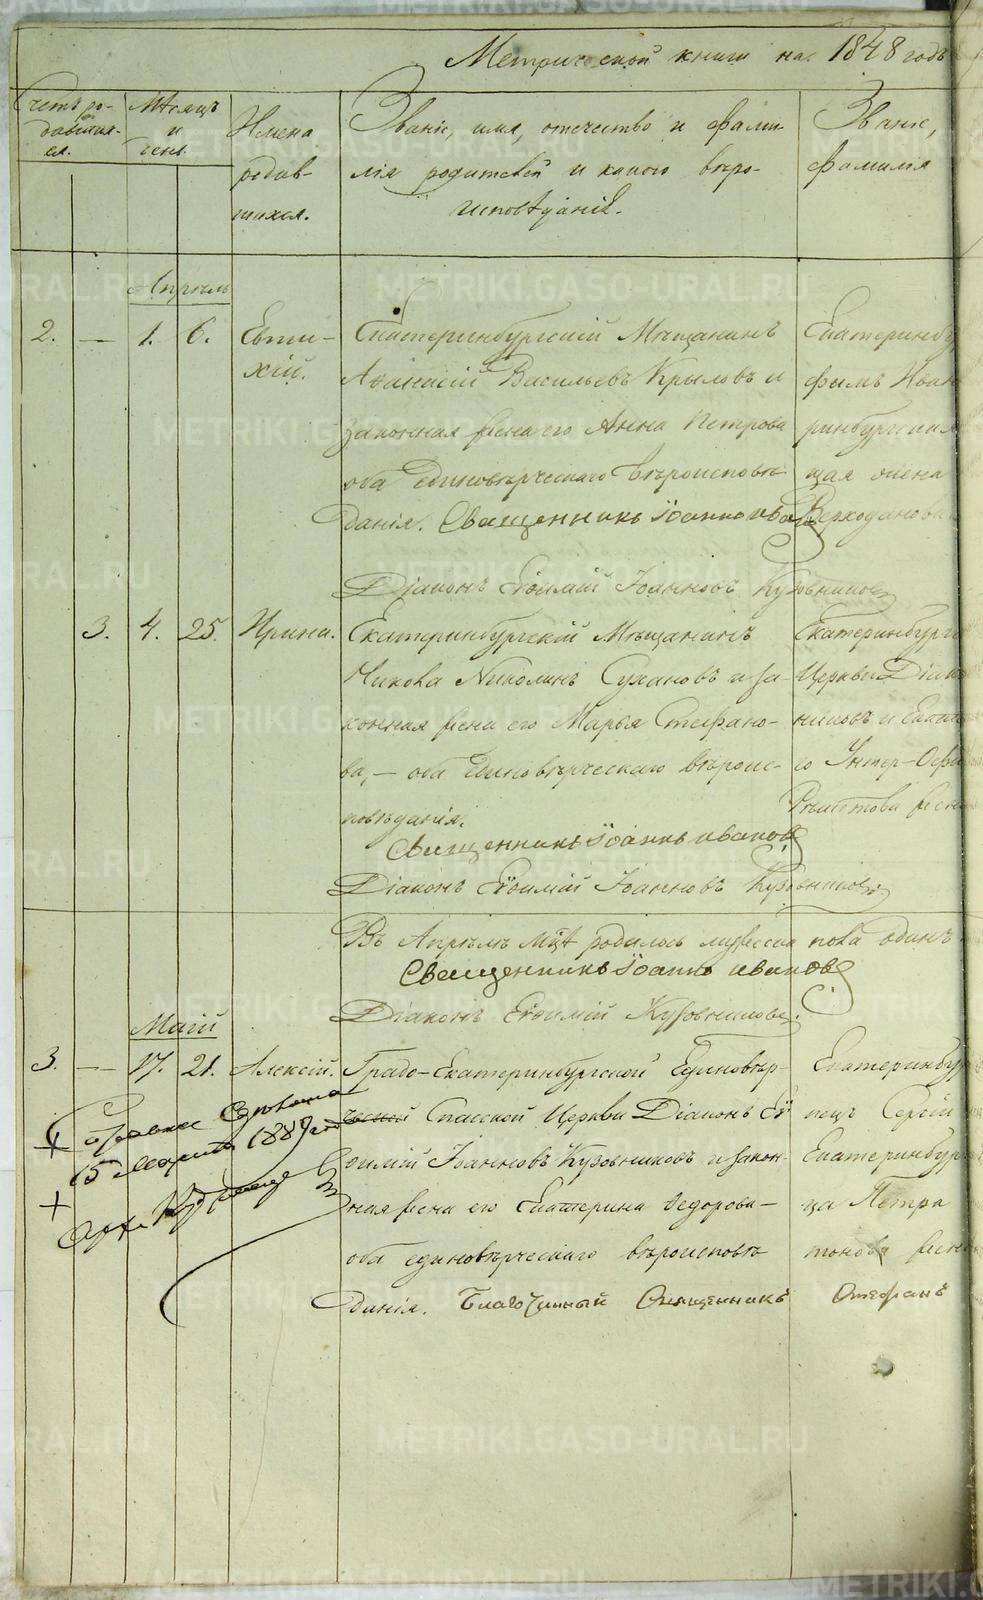 Метрической книги на 1848 годъ
Счетъ ро-
дивших-
ся.
Мѣсяцъ
и
день.
Имена
родив-
шихся.
Званіе, имя, отечество и фами-
лія родителей и какого вѣро-
исповѣданія.
Званіе,
фамилія
Апрѣль
2. — 1. 6. Евти-
хій.
Екатеринбургскій Мѣщанинъ
Аѳанасій Васильевъ Крыловъ и
законная жена его Анна Петрова
оба Единовѣрческаго Вѣроисповѣ-
данія. Священникъ Іоаннъ Ивановъ
Діаконъ Евѳимій Іоанновъ Кузовниковъ
Екатеринбу
фимъ Иван
ринбургска
щая жена
3. 4. 25. Ирина.
Екатеринбургскій Мѣщанинъ
Николинъ Сухановъ и за-
конная жена его Марья Стефано-
ва, — оба Единовѣрческаго вѣроис-
повѣданія.
Священникъ Іоаннъ Ивановъ
Діаконъ Евѳимій Іоанновъ Кузовниковъ
Екатеринбургс
Церкви Діако
никовъ и Екат
го Унтер-Офи
жена
Въ Апрѣлѣ мцѣ родилось мужеска пола одинъ
Священникъ Іоаннъ Ивановъ
Діаконъ Евѳимій Кузовниковъ.
Маій
3. — 17. 21. Алексій.
Градо-Екатеринбургской Единовѣр-
ческой Спасской Церкви Діаконъ Ев-
ѳимій Іоанновъ Кузовниковъ и закон-
ная жена его Екатерина Ѳедорова —
оба единовѣрческаго вѣроисповѣ-
данія. Благочинный Священникъ Стефанъ
Екатеринбу
пецъ Сергій
Екатеринбур
ца Петра
това жен
15 Марта 1889 года
METRIKI.GASO-URAL.RU